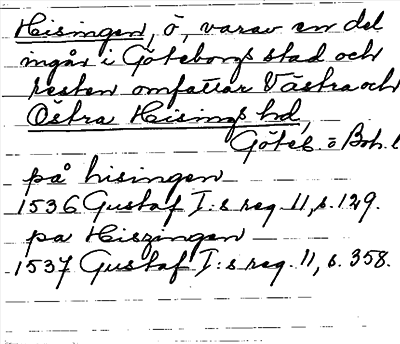 Hisingen, ö, varav en del
ingår i Göteborgs stad och
resten omfattar Västra och
Östra Hisings hd,
Göteb. o Boh. l
på hisingen
1536 Gustaf I:s reg. 11, s. 129.
pa Hiszingen
1537 Gustaf I:s reg. 11, s. 358.